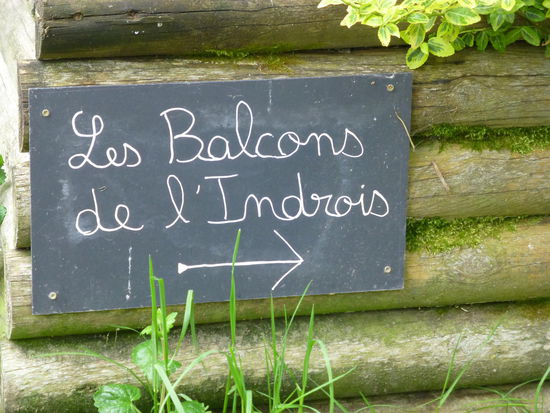 Les Balcons
de l'Indrois